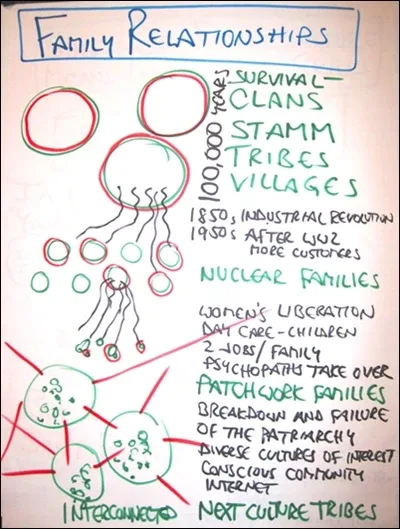 FAMILY RELATIONSHIPS
100,000 YEARS
SURVIVAL-
CLANS
STAMM
TRIBES
VILLAGES
1850s INDUSTRIAL REVOLUTION
1950s AFTER WW2
MORE CUSTOMERS
NUCLEAR FAMILIES
WOMEN'S LIBERATION
DAY CARE - CHILDREN
2 JOBS/FAMILY
PSYCHOPATHS TAKE OVER
PATCHWORK FAMILIES
BREAKDOWN AND FAILURE
OF THE PATRIARCHY
DIVERSE CULTURES OF INTEREST
CONSCIOUS COMMUNITY
INTERNET
INTERCONNECTED NEXT CULTURE TRIBES